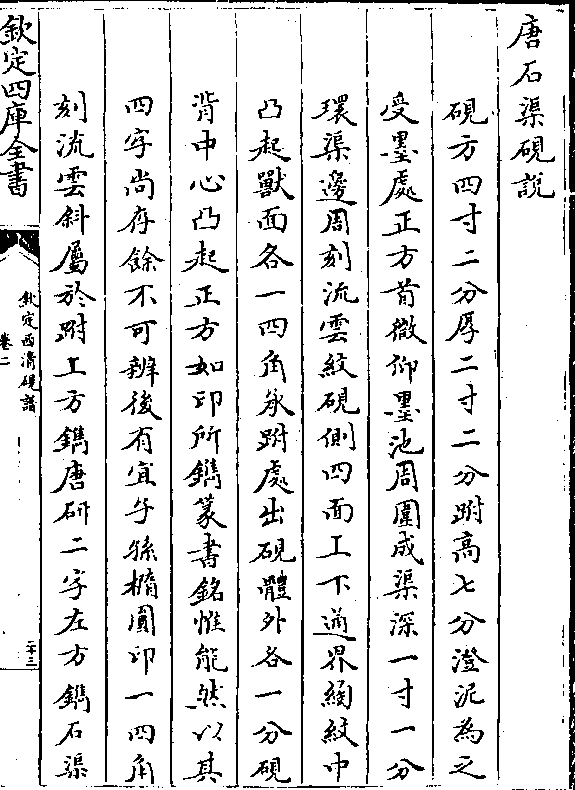 唐石渠硯說
硯方四寸二分厚二寸二分跗髙七分澄泥為之
受墨處正方前微仰墨池周圍成渠深一寸一分
環渠邊周刻流雲紋硯側四面上下通界綯紋中
凸起獸面各一四角承跗處出硯體外各一分硯
背中心凸起正方如印所鐫篆書銘惟能然以其
四字尚存餘不可辨後有宜子孫橢圓印一四角
刻流雲斜屬於跗上方鐫唐研二字左方鐫石渠
欽定四庫全書
欽定西清硯譜
卷二
二十三